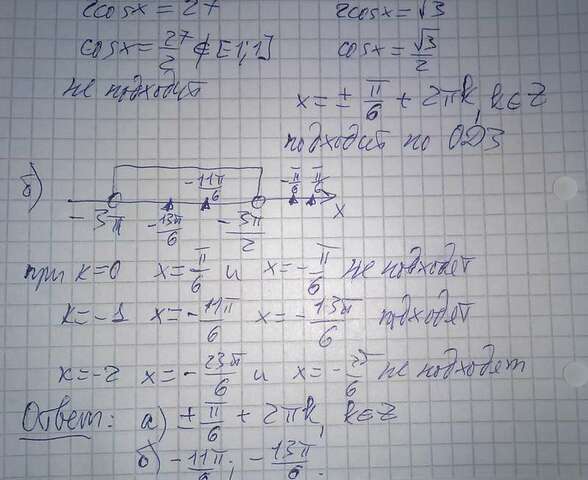 2cosx = 27
cosx = 27/2 ∉ [-1;1]
не подходит
2cosx = √3
cosx = √3/2
x = ± π/6 + 2πk, k∈Z
подходит по ОДЗ
б)
-3π -13π/6 -11π/6 -3π/2 -π/6 π/6 x
при k=0 x = π/6 и x = -π/6 не подходят
k=-1 x = -11π/6 x = -13π/6 подходят
k=-2 x = -23π/6 и x = - π/6 не подходят
Ответ: а) ± π/6 + 2πk, k∈Z
б) -11π/6; -13π/6.